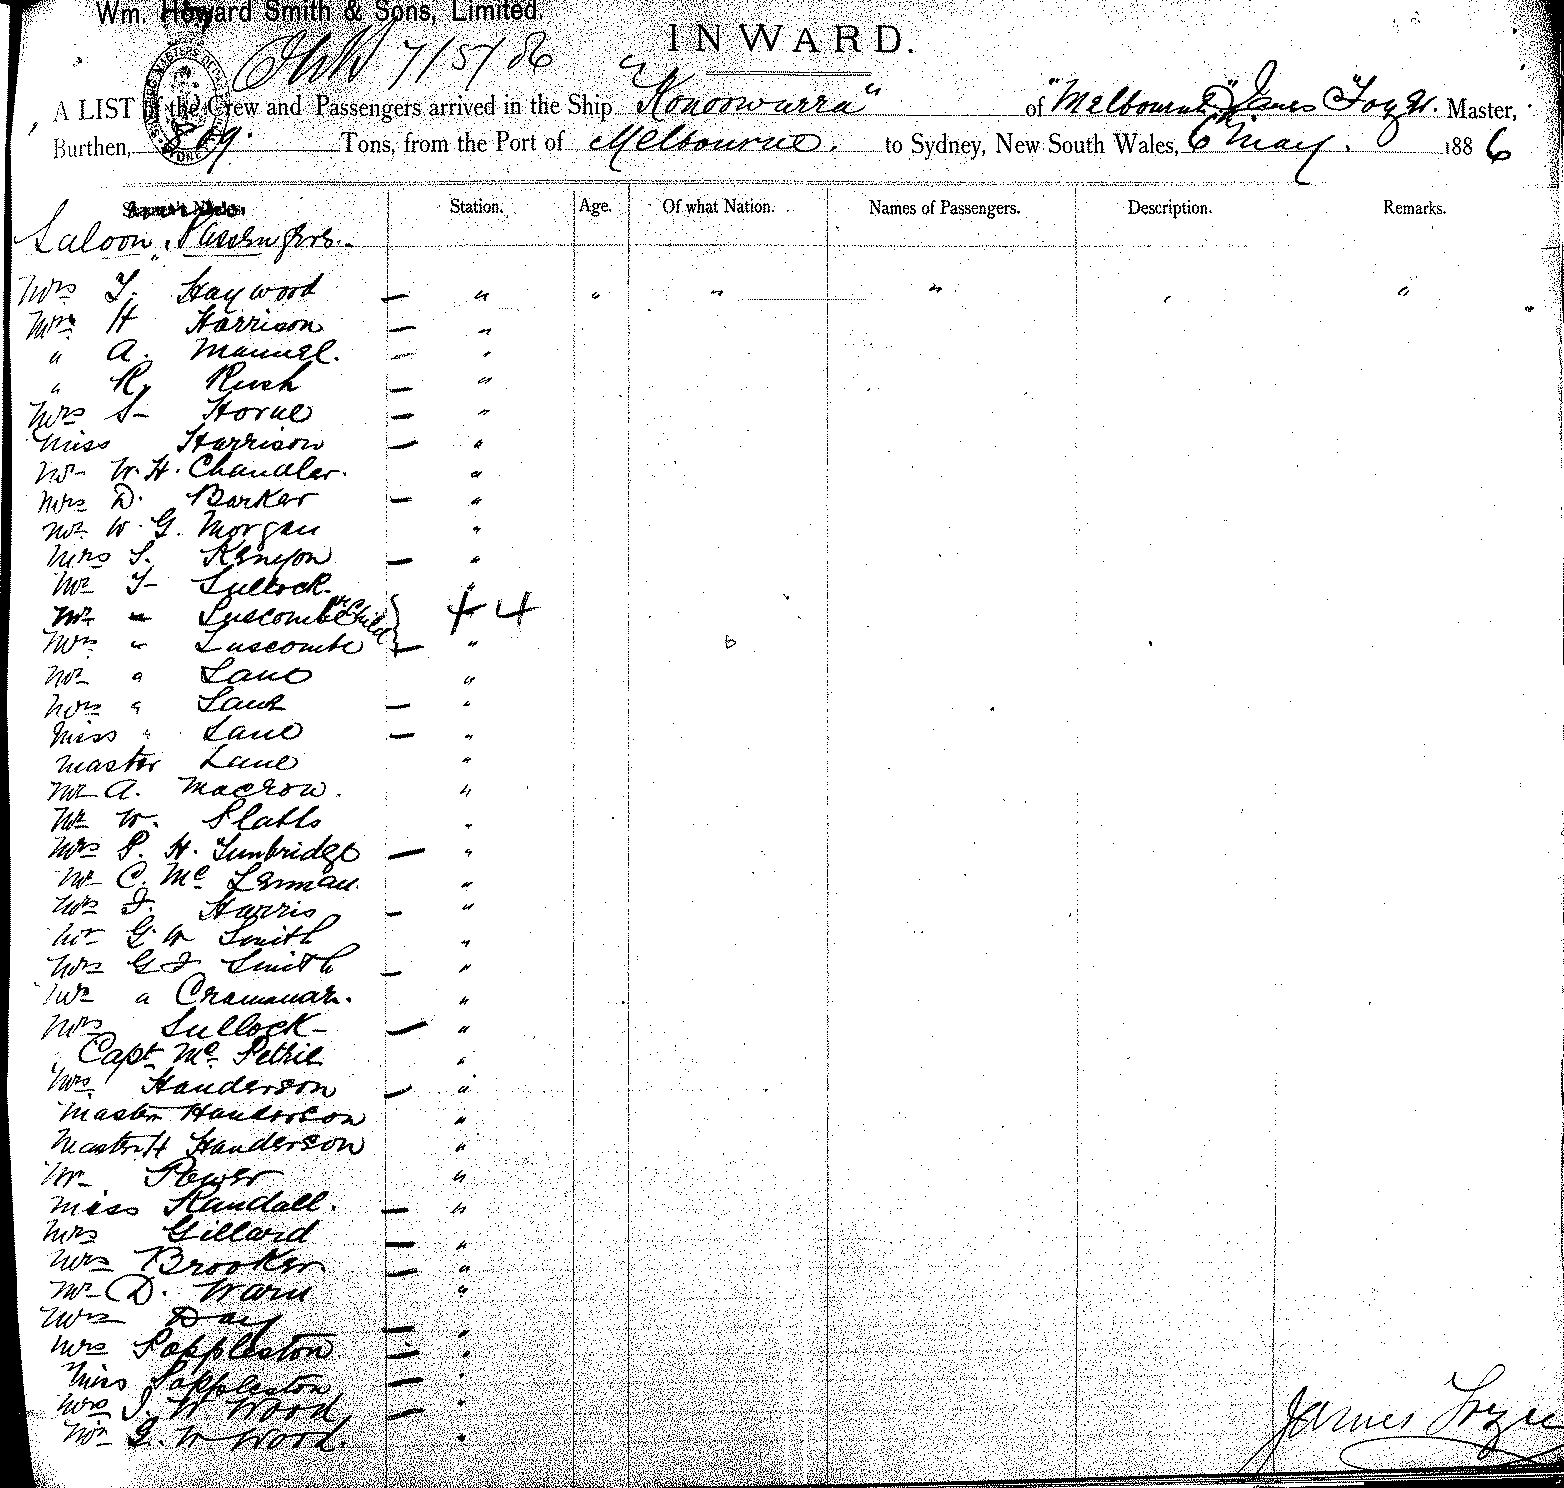 Wm. Howard Smith & Sons, Limited.
7/5/86
INWARD.
A LIST of the Crew and Passengers arrived in the Ship "Konoowarra" of "Melbourne" James Master,
Burthen, 809. Tons, from the Port of Melbourne. to Sydney, New South Wales, 6 May. 1886
Station. Age. Of what Nation. Names of Passengers. Description. Remarks.
Saloon Passengers.
Mrs T. Haywood — " " " " "
Mrs H Harrison — "
" A. Manuel. — "
" R. Rush — "
Mrs S— Horne — "
Miss Harrison — "
Mr W. H. Chandler. "
Mrs D. Barker — "
Mr W. G. Morgan "
Mrs S. Kenyon — "
Mr T— Sullock "
Mr " Luscombe Child + 4
Mrs " Luscombe — "
Mr " Lane "
Mrs " Lane — "
Miss " Lane — "
Master Lane "
Mr A. Macrow. "
Mr W. Slatts "
Mrs P. H. Tunbridge — "
Mr C. Mc Lennan. "
Mrs J. Harris — "
Mr G W Smith "
Mrs G J Smith — "
Mr a "
Mrs Sullock — "
Capt Mc Petrie "
Mrs Handerson — "
Master Handerson "
Master H Handerson "
Mr Power "
Miss Randall. — "
Mrs Gillard — "
Mrs Brooker — "
Mr D. Warn "
Mrs Day — "
Mrs Poppleston — "
Miss Poppleston — "
Mrs J. W Wood — "
Mr G. W Wood. "
James